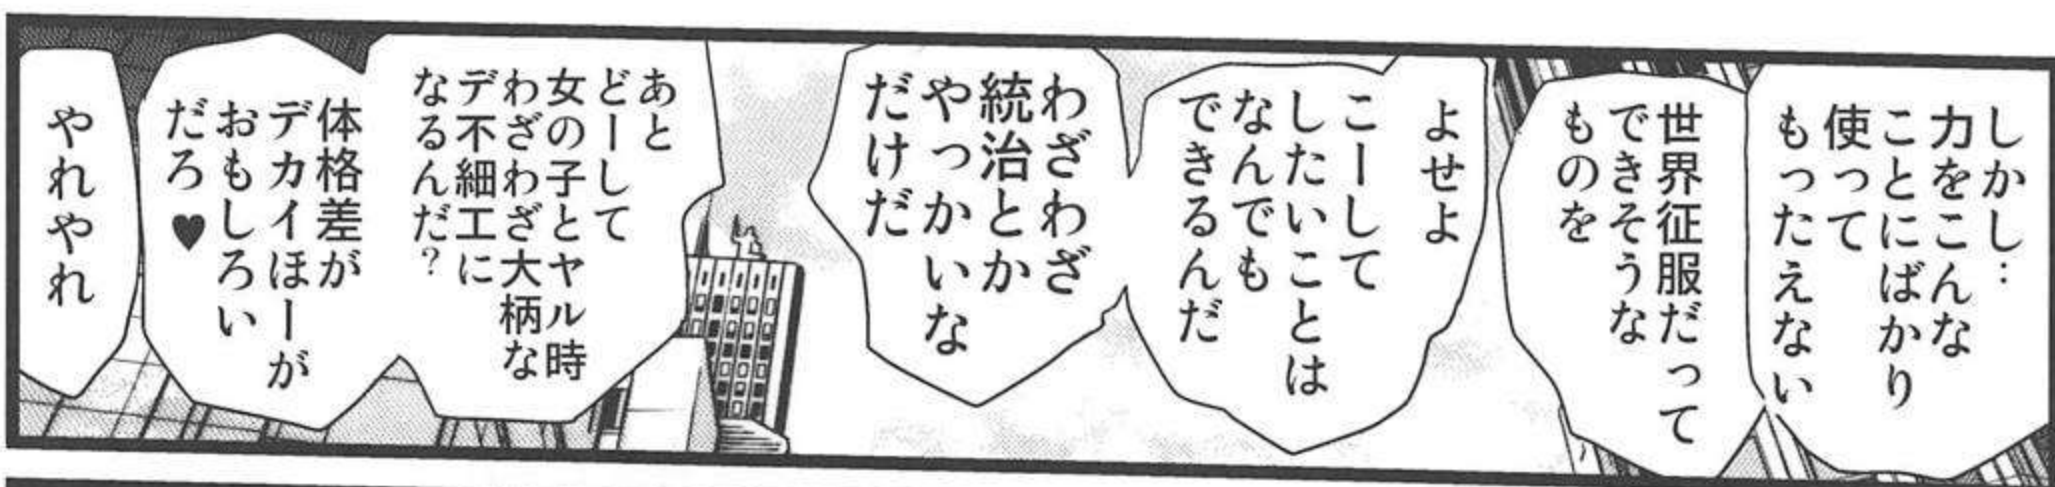 しかし…
力をこんな
ことにばかり
使って
もったえない
世界征服だって
できそうな
ものを
よせよ
こーして
したいことは
なんでも
できるんだ
わざわざ
統治とか
やっかいな
だけだ
あと
どーして
女の子とヤル時
わざわざ大柄な
デ不細工に
なるんだ?
体格差が
デカイほーが
おもしろい
だろ♥
やれやれ